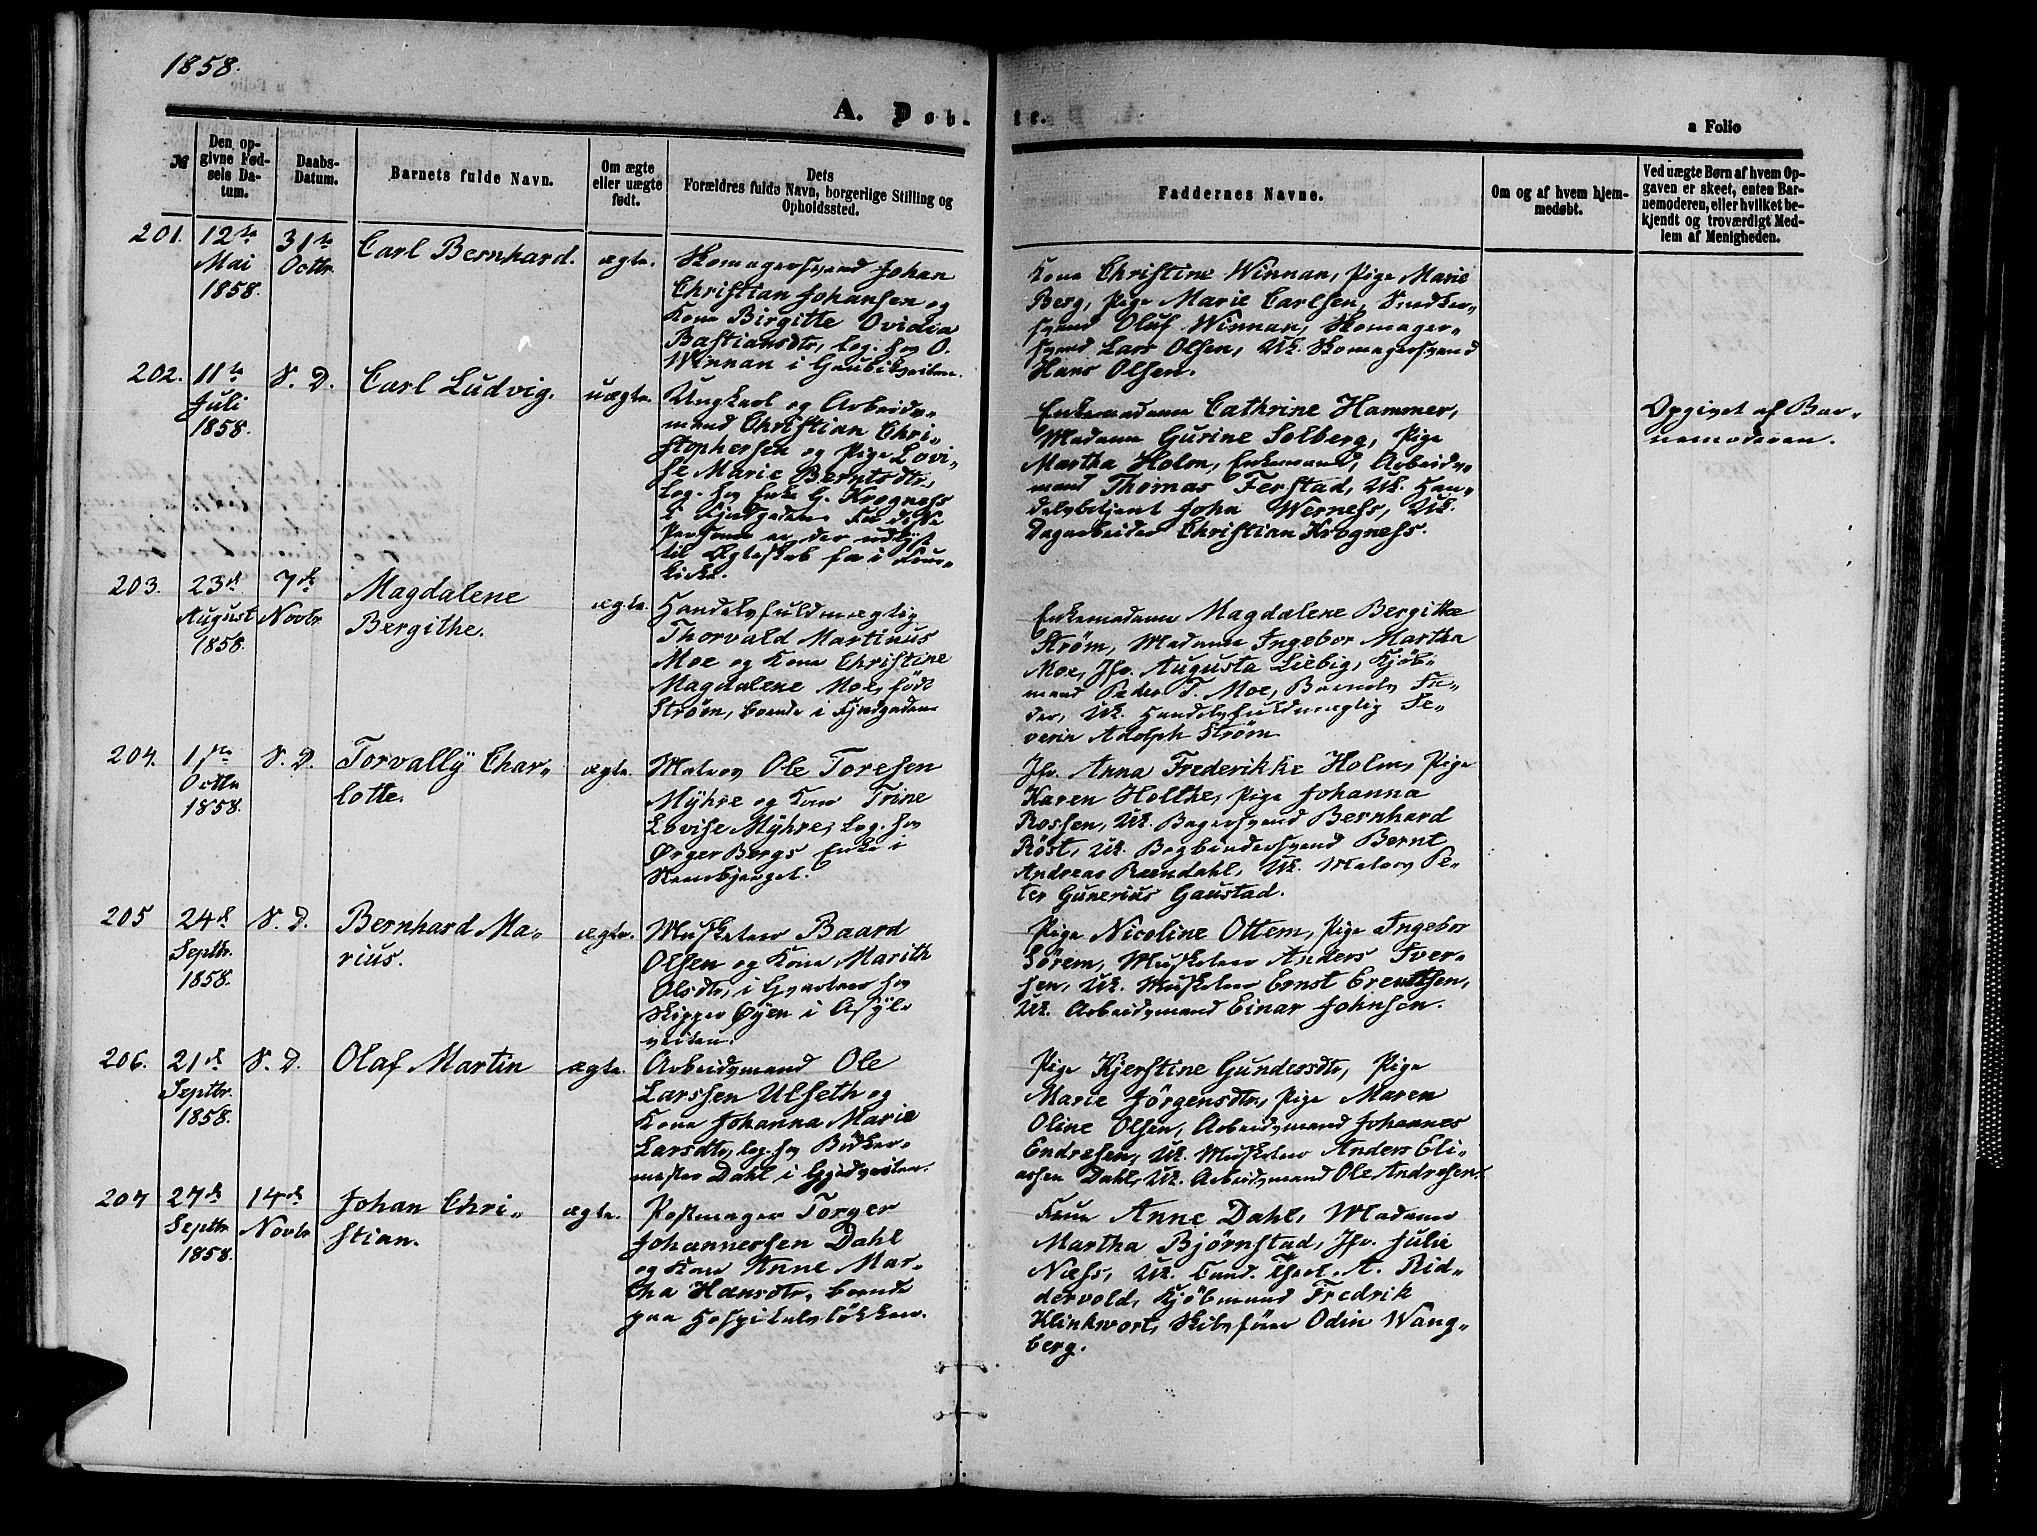 1858.
A. Døbte.
a Folio
№
Den opgivne Fødsels Datum.
Daabs-Datum.
Barnets fulde Navn.
Om ægte eller uægte født.
Dets Forældres fulde Navn, borgerlige Stilling og Opholdssted.
Faddernes Navne.
Om og af hvem hjemmedøbt.
Ved uægte Børn af hvem Opgaven er skeet, enten Barnemoderen, eller hvilket bekjendt og troværdigt Medlem af Menigheden.
201.
12te
Mai
1858.
31te
Octbr.
Carl Bernhard.
ægte.
Skomagersvend Johan
Christian Johansen og
Kone Birgitte Ovidia
Bastiansdtr, log. hos O.
Winnan i Gaubekveiten.
Kone Christine Winnan, Pige Marie
Berg, Pige Marie Carlsen, Snedker-
svend Oluf Winnan, Skomager-
svend Lars Olsen, Uk. Skomagersvend
Hans Olsen.
202.
11te
Juli
1858.
S. D.
Carl Ludvig.
uægte.
Ungkarl og Arbeids-
mand Christian Chri-
stophersen og Pige Lovi-
se Marie Berntsdtr,
log. hos Enke G. Krogness
i Fjordgaden. For disse
Personer er der udlyst
til Ægteskab fra i Frue-
kirke.
Enkemadame Cathrine Hammer,
Madame Gurine Solberg, Pige
Martha Holm, Enkemand, Arbeids-
mand Thomas Ferstad, Uk. Han-
delsbetjent John Werness, Uk.
Dagarbeider Christian Krogness.
Opgivet af Bar-
nemoderen.
203.
23de
August
1858.
7de
Novbr
Magdalene
Bergithe.
ægte.
Handelsfuldmægtig
Thorvald Martinus
Moe og Kone Christine
Magdalene Moe, født
Strøm, boende i Fjordgaden
Enkemadame Magdalene Bergithe
Strøm, Madame Ingebor Martha
Moe, Jfr. Augusta Liebig, Kjøb-
mand Peder T. Moe, Barnets Fa-
der, Uk. Handelsfuldmægtig Se-
verin Adolph Strøm
204.
1ste
Octbr
1858.
S. D.
Torvally Char-
lotte.
ægte.
Maler Ole Toresen
Myhre og Kone Trine
Lovise Myhre, log. hos
Ørger Bergs Enke i
Steenbjerget.
Jfr. Anna Frederikke Holm, Pige
Karen Holthe, Pige Johanna
Rossen, Uk. Bagersvend Bernhard
Röst, Uk. Bogbindersvend Bernt
Andreas Reendahl, Uk. Maler Pe-
ter Gunerius Gaustad.
205
24de
Septbr.
1858.
S. D.
Bernhard Ma-
rius.
ægte.
Musketeer Baard
Olsen og Kone Marith
Olsdtr, i Qvarteer hos
Skipper Öyen i Asyl-
veiten.
Pige Nicoline Ottem, Pige Ingebor
Sörem, Musketeer Anders Iver-
sen, Uk. Musketeer Ernst Erentsen,
Uk. Arbeidsmand Einar Johnsen.
206.
21de
Septbr.
1858.
S. D.
Olaf Martin
ægte.
Arbeidsmand Ole
Larssen Ulseth og
Kone Johanna Marie
Larsdtr, log. hos Bödker-
mester Dahl i Gjedveiten.
Pige Kjerstine Gundersdtr, Pige
Marie Jörgensdtr, Pige Maren
Oline Olsen, Arbeidsmand Johannes
Endresen, Uk. Musketeer Anders Eli-
assen Dahl, Uk. Arbeidsmand Ole Andresen.
207
27de
Septbr
1858.
14de
Novbr
Johan Chri-
stian.
ægte.
Postmager Torger
Johannessen Dahl
og Kone Anne Mar-
tha Hansdtr, boende
paa Hospitalslökken.
Frue Anne Dahl, Madame
Martha Bjørnstad, Jfr. Julie
Næss, Uk. Cand. Theol. A. Rid-
dervold, Kjöbmand Fredrik
Klinkwort, Skibsförer Odin Wang-
berg.